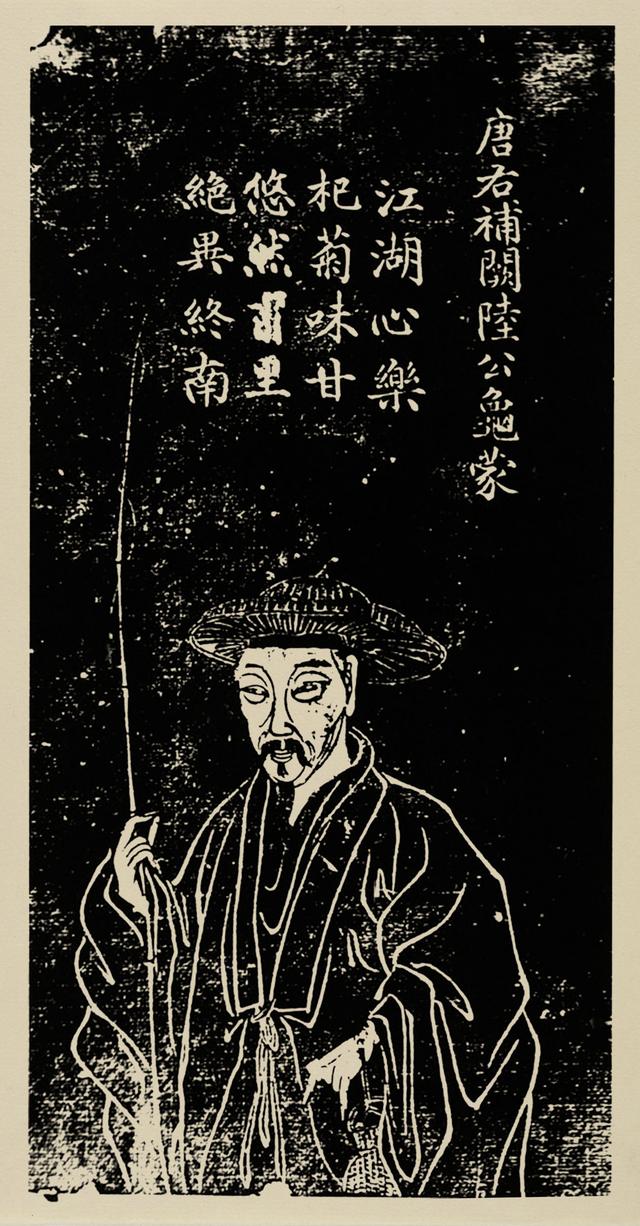 唐右補闕陸公龜蒙
江湖心樂
杞菊味甘
悠然甫里
絶異終南